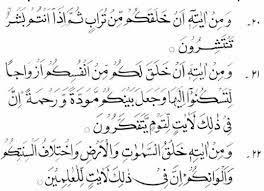 ٢٠- وَمِنْ اٰيٰتِهٖٓ اَنْ خَلَقَكُمْ مِّنْ تُرَابٍ ثُمَّ اِذَآ اَنْتُمْ بَشَرٌ
تَنْتَشِرُوْنَ ○
٢١- وَمِنْ اٰيٰتِهٖٓ اَنْ خَلَقَ لَكُمْ مِّنْ اَنْفُسِكُمْ اَزْوَاجًا
لِّتَسْكُنُوْٓا اِلَيْهَا وَجَعَلَ بَيْنَكُمْ مَّوَدَّةً وَّرَحْمَةً ۗ اِنَّ
فِيْ ذٰلِكَ لَاٰيٰتٍ لِّقَوْمٍ يَّتَفَكَّرُوْنَ ○
٢٢- وَمِنْ اٰيٰتِهٖ خَلْقُ السَّمٰوٰتِ وَالْاَرْضِ وَاخْتِلَافُ اَلْسِنَتِكُمْ
وَاَلْوَانِكُمْ ۗ اِنَّ فِيْ ذٰلِكَ لَاٰيٰتٍ لِّلْعٰلِمِيْنَ ○